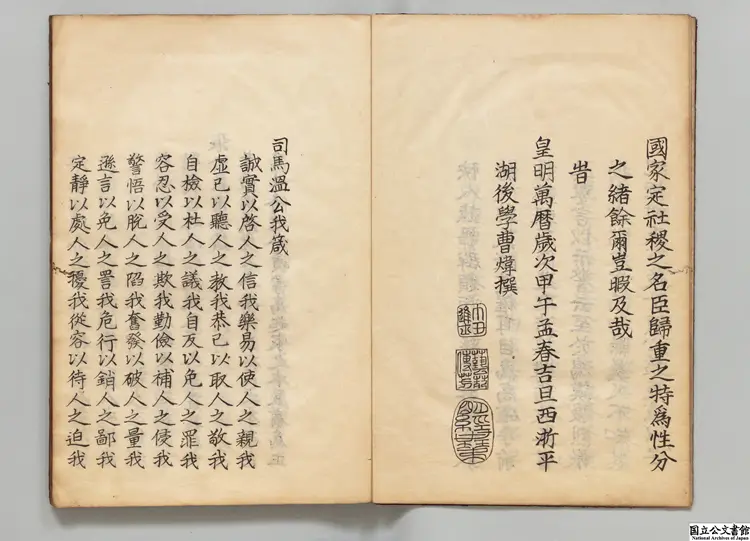 國家定社稷之名臣歸重之特為性分
之緒餘爾豈暇及哉
昔
皇明萬曆歲次甲午孟春吉旦西浙平
湖後學曹煒撰
司馬溫公我箴
誠實以啓人之信我樂易以使人之親我
虛已以聽人之教我恭已以取人之敬我
自檢以杜人之議我自反以免人之罪我
容忍以受人之欺我勤儉以補人之侵我
警悟以脫人之陷我奮發以破人之量我
遜言以免人之詈我危行以銷人之鄙我
定靜以處人之擾我從容以待人之迫我
国立公文書館
National Archives of Japan